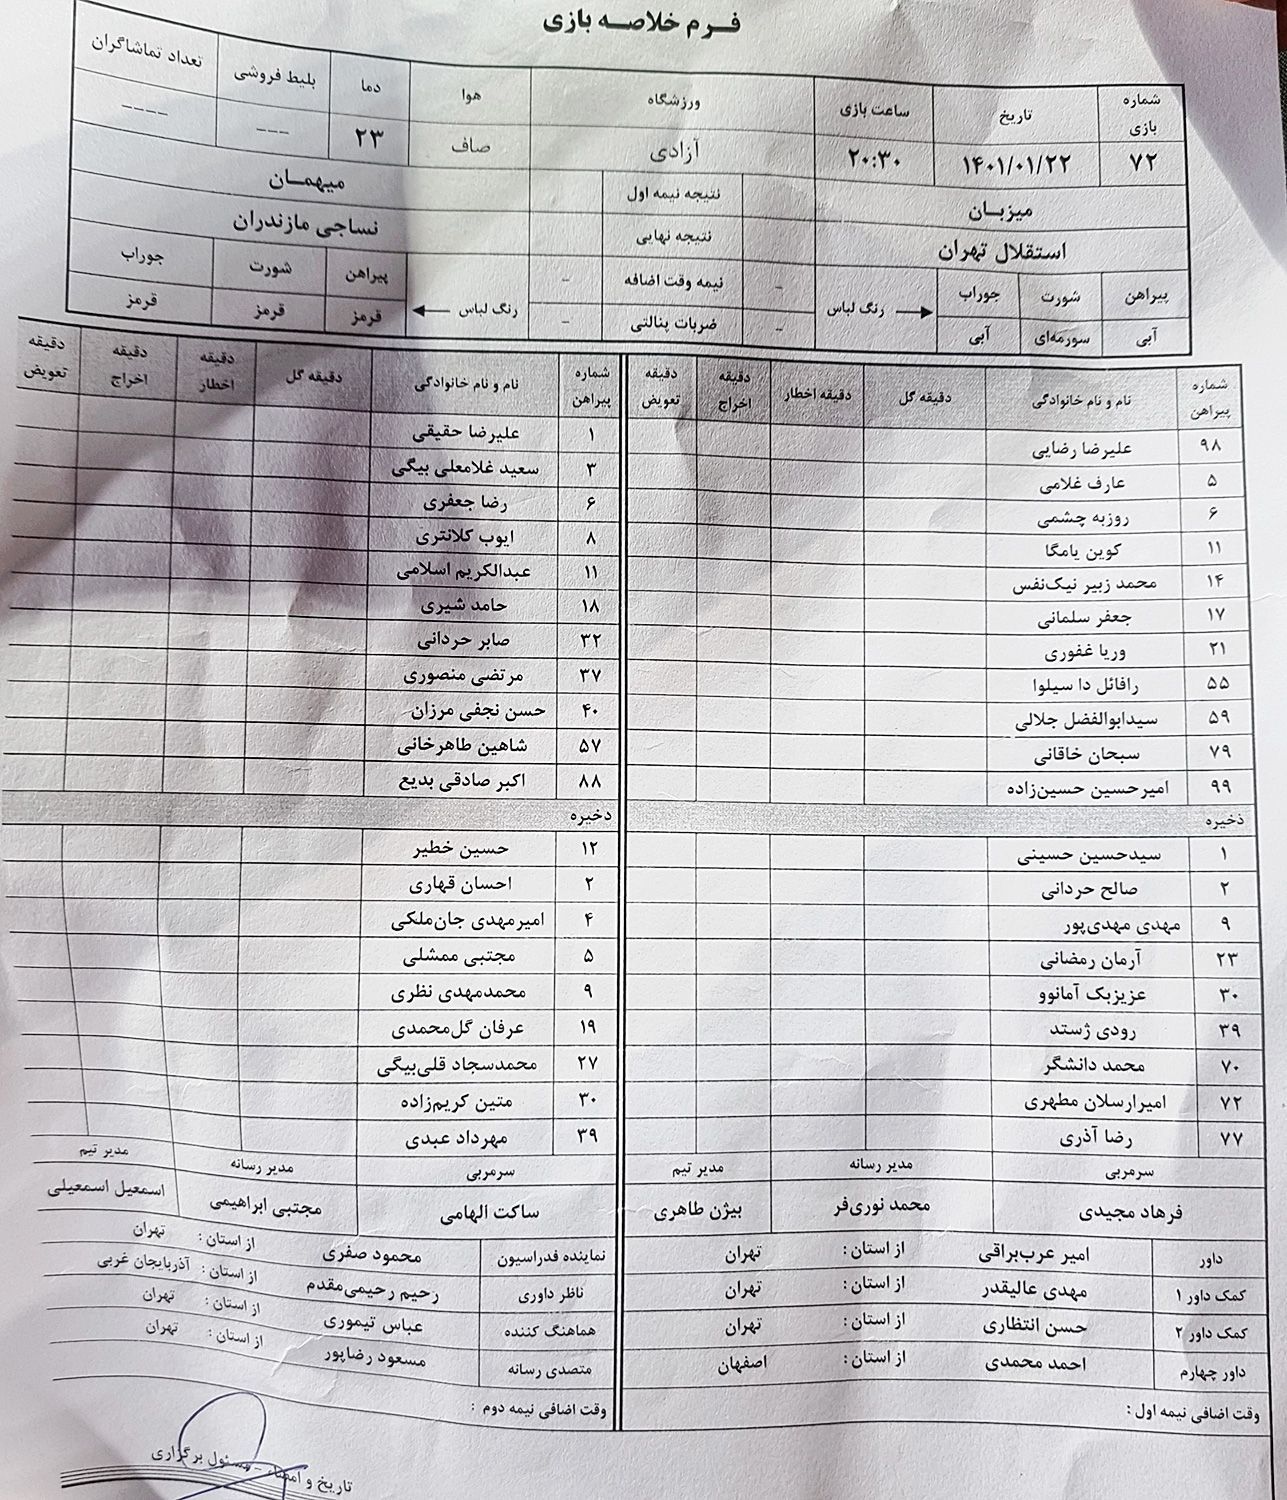 فـرم خلاصـه بازی
شماره بازی تاریخ ساعت بازی ورزشگاه هوا دما بلیط فروشی تعداد تماشاگران
۷۲ ۱۴۰۱/۰۱/۲۲ ۲۰:۳۰ آزادی صاف ۲۳ --- ----
میزبـان نتیجه نیمه اول میهمـان
استقلال تهران نتیجه نهایی نساجی مازندران
پیراهن شورت جوراب رنگ لباس - نیمه وقت اضافه - رنگ لباس پیراهن شورت جوراب
آبی سورمه‌ای آبی - ضربات پنالتی - قرمز قرمز قرمز
شماره پیراهن نام و نام خانوادگی دقیقه گل دقیقه اخطار دقیقه اخراج دقیقه تعویض شماره پیراهن نام و نام خانوادگی دقیقه گل دقیقه اخطار دقیقه اخراج دقیقه تعویض
۹۸ علیرضا رضایی ۱ علیرضا حقیقی
۵ عارف غلامی ۳ سعید غلامعلی بیگی
۶ روزبه چشمی ۶ رضا جعفری
۱۱ کوین یامگا ۸ ایوب کلانتری
۱۴ محمد زبیر نیک‌نفس ۱۱ عبدالکریم اسلامی
۱۷ جعفر سلمانی ۱۸ حامد شیری
۲۱ وریا غفوری ۳۲ صابر حردانی
۵۵ رافائل دا سیلوا ۳۷ مرتضی منصوری
۵۹ سیدابوالفضل جلالی ۴۰ حسن نجفی مرزان
۷۹ سبحان خاقانی ۵۷ شاهین طاهرخانی
۹۹ امیرحسین حسین‌زاده ۸۸ اکبر صادقی بدیع
ذخیره ذخیره
۱ سیدحسین حسینی ۱۲ حسین خطیر
۲ صالح حردانی ۲ احسان قهاری
۹ مهدی مهدی‌پور ۴ امیرمهدی جان‌ملکی
۲۳ آرمان رمضانی ۵ مجتبی ممشلی
۳۰ عزیزبک آمانوو ۹ محمدمهدی نظری
۳۹ رودی ژستد ۱۹ عرفان گل‌محمدی
۷۰ محمد دانشگر ۲۷ محمدسجاد قلی‌بیگی
۷۲ امیرارسلان مطهری ۳۰ متین کریم‌زاده
۷۷ رضا آذری ۳۹ مهرداد عبدی
سرمربی مدیر رسانه مدیر تیم سرمربی مدیر رسانه مدیر تیم
فرهاد مجیدی محمد نوری‌فر بیژن طاهری ساکت الهامی مجتبی ابراهیمی اسمعیل اسمعیلی
داور امیر عرب‌براقی از استان : تهران نماینده فدراسیون محمود صفری از استان : تهران
کمک داور ۱ مهدی عالیقدر از استان : تهران ناظر داوری رحیم رحیمی‌مقدم از استان : آذربایجان غربی
کمک داور ۲ حسن انتظاری از استان : تهران هماهنگ کننده عباس تیموری از استان : تهران
داور چهارم احمد محمدی از استان : اصفهان متصدی رسانه مسعود رضاپور از استان : تهران
وقت اضافی نیمه اول : وقت اضافی نیمه دوم :
تاریخ و امضاء - مسئول برگزاری